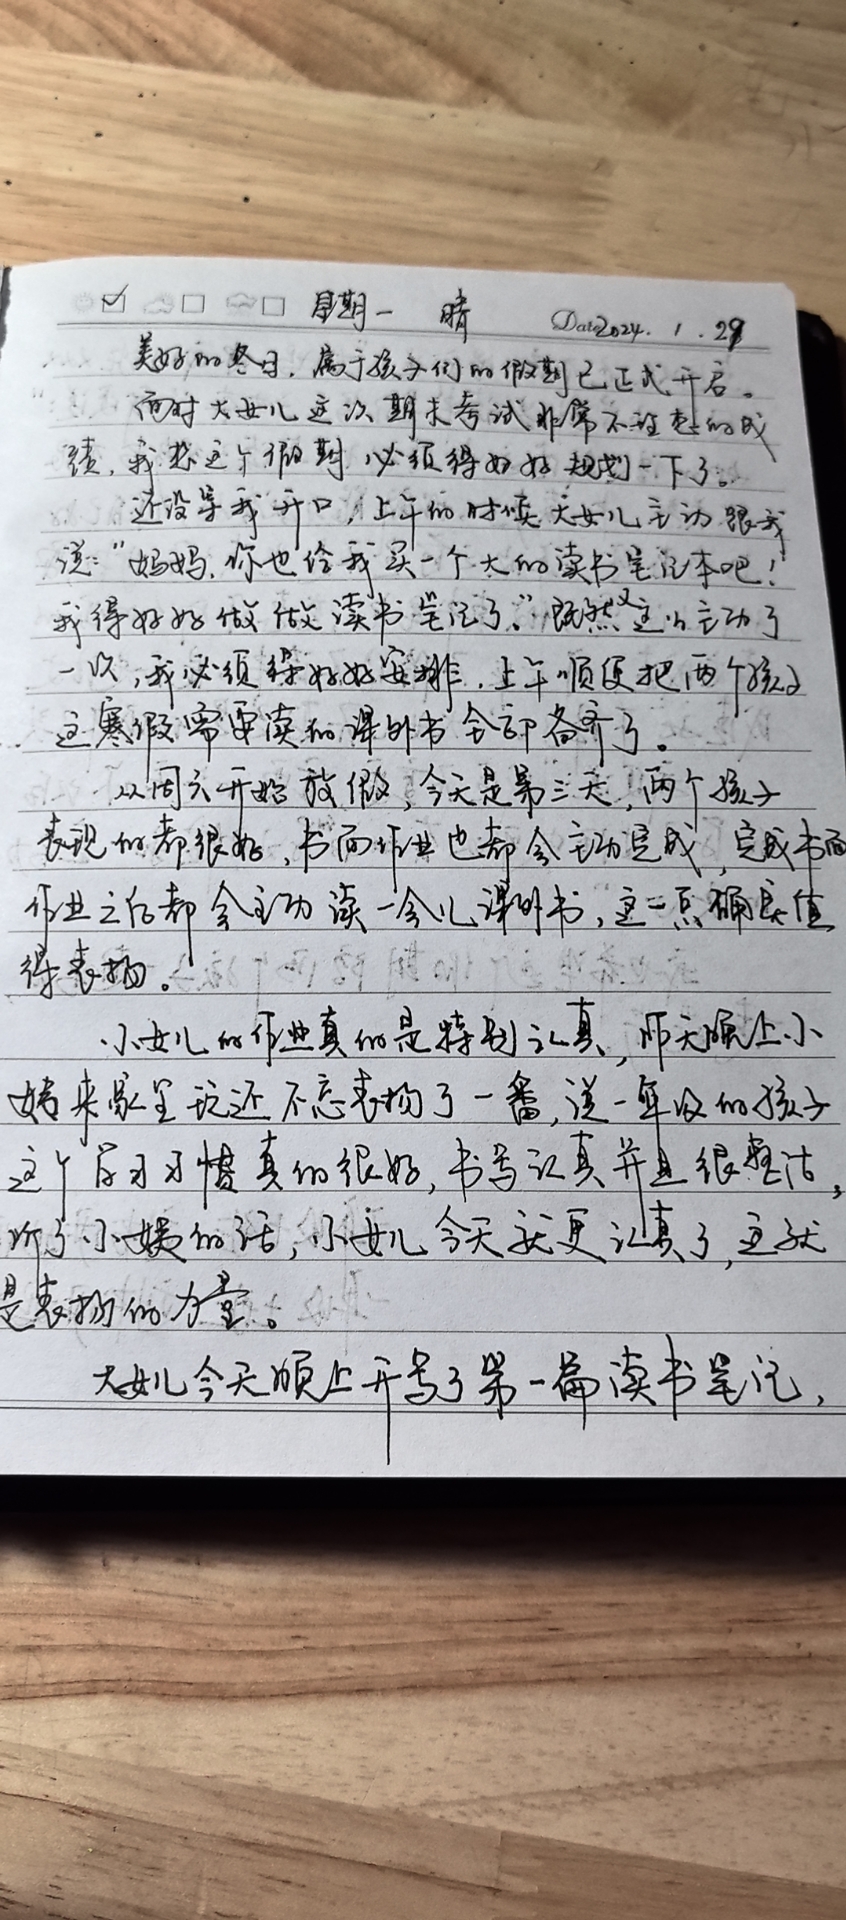 星期一 晴 Date 2024. 1. 29
美好的冬日，属于孩子们的假期已正式开启。
面对大女儿这次期末考试非常不理想的成
绩，我想这个假期必须得好好规划一下了。
还没等我开口，上午的时候大女儿主动跟我
说：“妈妈，你也给我买一个大的读书笔记本吧！
我得好好做做读书笔记了。”既然又这么主动了
一次，我必须得好好安排，上午顺便把两个孩子
这寒假需要读的课外书全部备齐了。
从周六开始放假，今天是第三天，两个孩子
表现的都很好，书面作业也都会主动完成，完成书面
作业之后都会主动读一会儿课外书，这一点确实值
得表扬。
小女儿的作业真的是特别认真，昨天晚上小
姨来家里玩还不忘表扬了一番，说一年级的孩子
这个学习习惯真的很好，书写认真并且很整洁，
听了小姨的话，小女儿今天就更认真了，这就
是表扬的力量。
大女儿今天晚上开写了第一篇读书笔记，